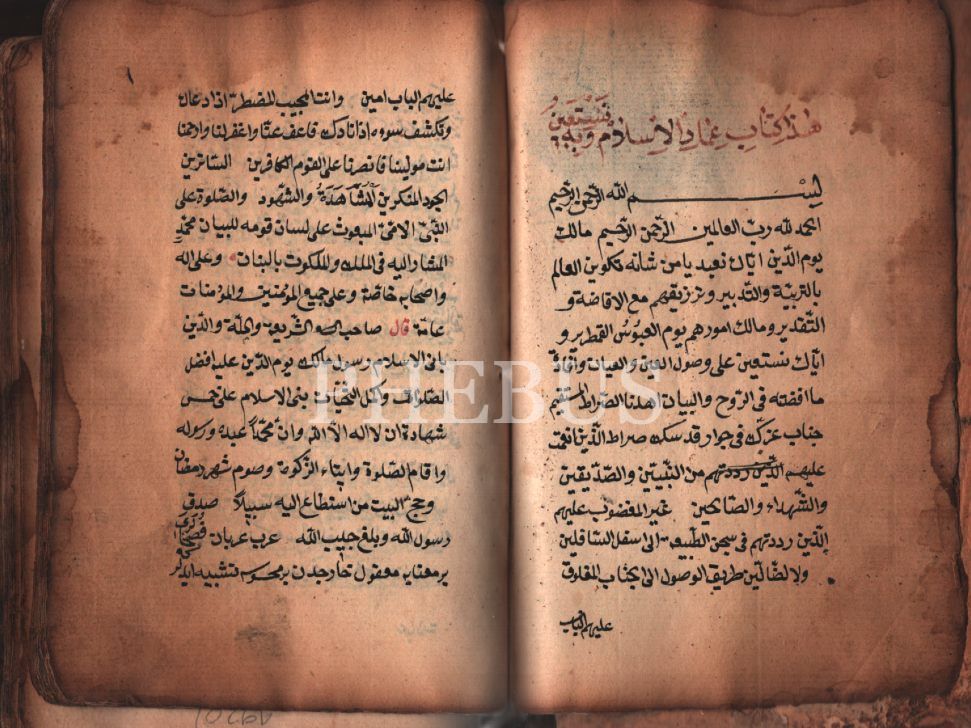 هذا كتاب عماد الاسلام وبه نستعين
بسم الله الرحمن الرحيم
الحمد لله رب العالمين الرحمن الرحيم مالك
يوم الدين اياك نعبد يا من شانه تكوين العالم
بالتربية والتدبير وترزيقهم مع الافاضة و
التقدير و مالك امورهم يوم العبوس القمطرير و
اياك نستعين على وصول العين والعيان وافاد
ما افضته فى الروح والبيان اهدنا الصراط المستقيم
جناب عزك فى جوار قدسك صراط الذين انعمت
عليهم الذين رددتهم من النبيين والصديقين
والشهداء والصالحين غير المغضوب عليهم
الذين رددتهم فى سجن الطبيعة الى اسفل السافلين
ولا الضالين طريق الوصول الى الجناب المغلوق
عليهم الباب
عليهم الباب امين وانت المجيب للمضطر اذا دعاك
وتكشف سوءه اذا ناداك فاعف عنا واغفر لنا وارحمنا
انت مولينا فانصرنا على القوم الكافرين الساترين
الجود المنكرين للمشاهدة والشهود والصلوة على
النبى الامى المبعوث على لسان قومه للبيان محمد
المشار اليه فى الملك والملكوت بالبنان وعلى اله
واصحابه خاصة وعلى جميع المؤمنين والمؤمنات
عامة قال صاحب الشريعة والملة والدين
بانى الاسلام رسول مالك يوم الدين عليه افضل
الصلوات وكمل التحيات بنى الاسلام على خمس
شهادة ان لا اله الا الله وان محمدا عبده ورسوله
واقام الصلوة وايتاء الزكوة وصوم شهر رمضان
وحج البيت من استطاع اليه سبيلا صدق
رسول الله وبلغ حبيب الله عرب عربان فصحاسى
بر معنايه معقول خارجدن بر محسوسه تشبيه ايدلر
PHEBUS